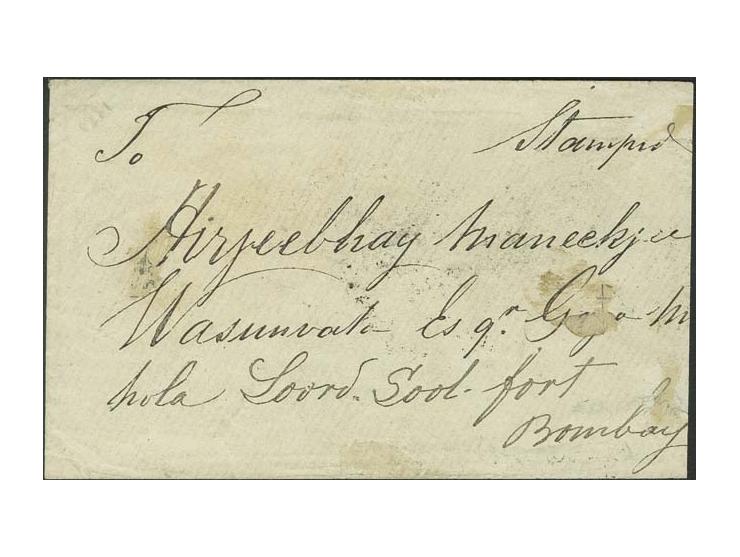 To Stamped
Hirjeebhay Maneckjee
Wasunvala Esqr. M
hola Loord. Sool. fort
Bombay